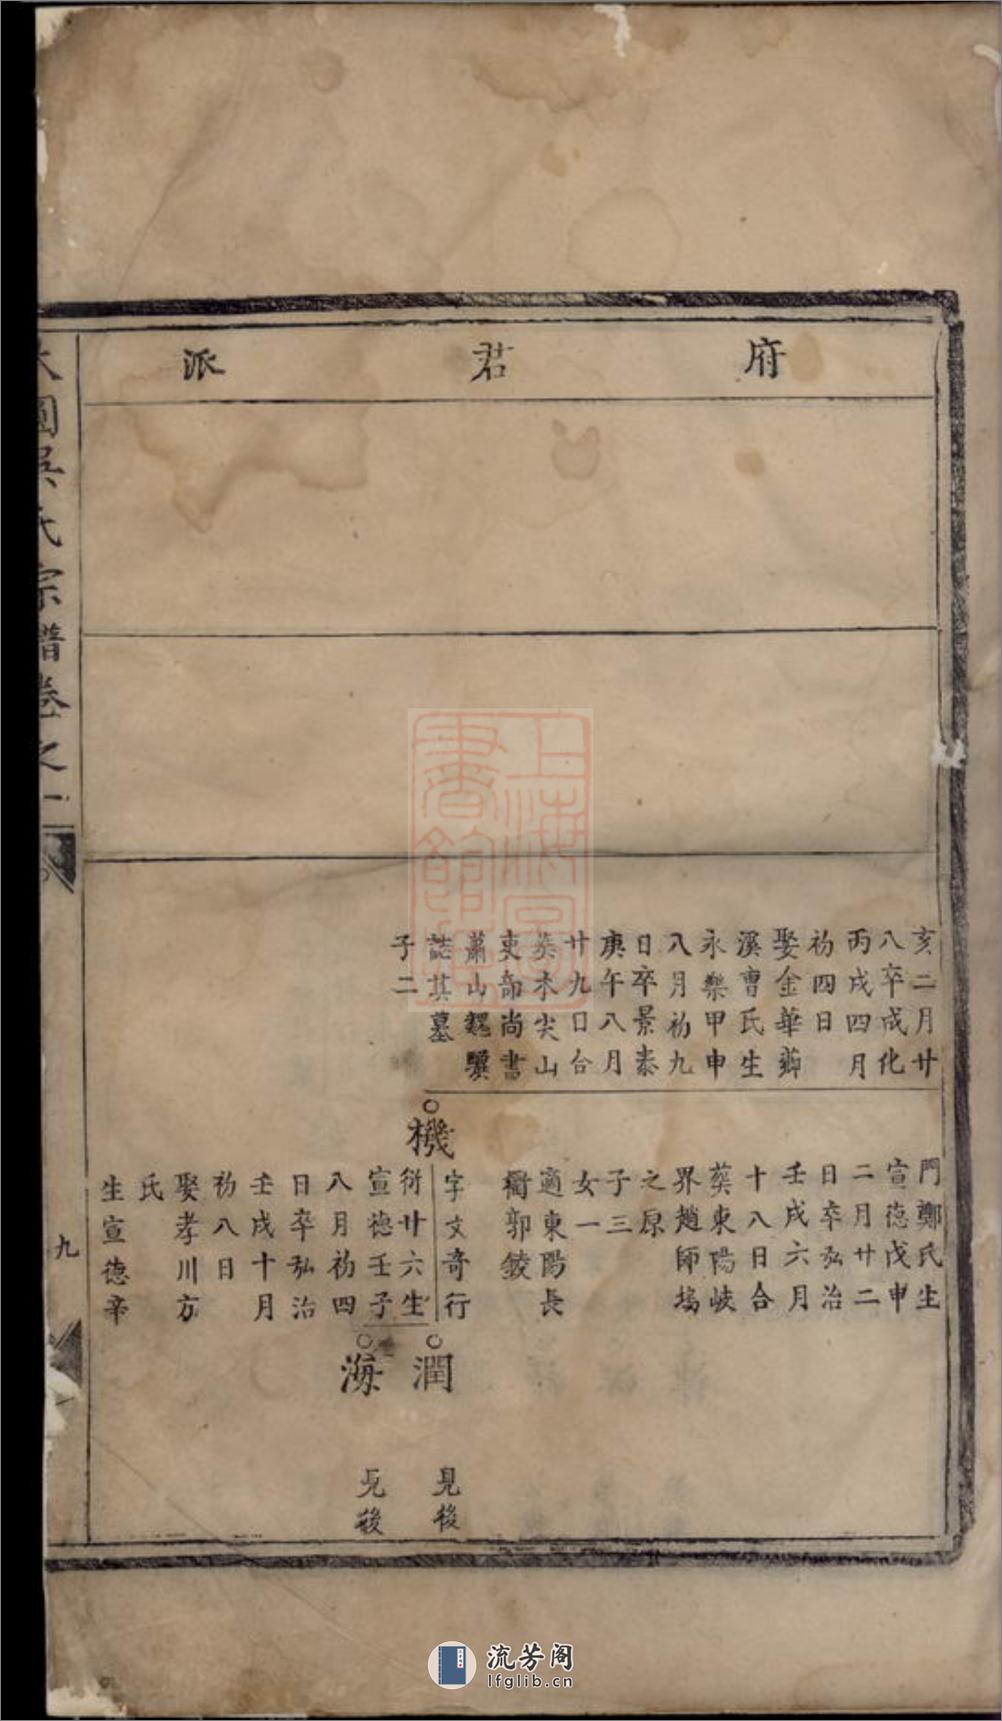 府君派
亥二月廿
八卒成化
丙戌四月
初四日
娶金華鄉
溪曹氏生
永樂甲申
八月初九
日卒景泰
庚午八月
廿九日合
葬木尖山
吏部尚書
蕭山魏驥
誌其墓
子二
門鄭氏生
宣德戊申
二月廿二
日卒弘治
壬戌六月
十八日合
葬東陽峡
界趙師塢
之原
子三
女一
適東陽長
衢郭鋑
機
字文奇行
衍廿六生
宣德壬子
八月初四
日卒弘治
壬戌十月
初八日
娶孝川方
氏
生宣德辛
潤
見後
海
見後
吳氏宗譜卷之一
九
上海圖書館藏
流芳阁
lfglib.cn